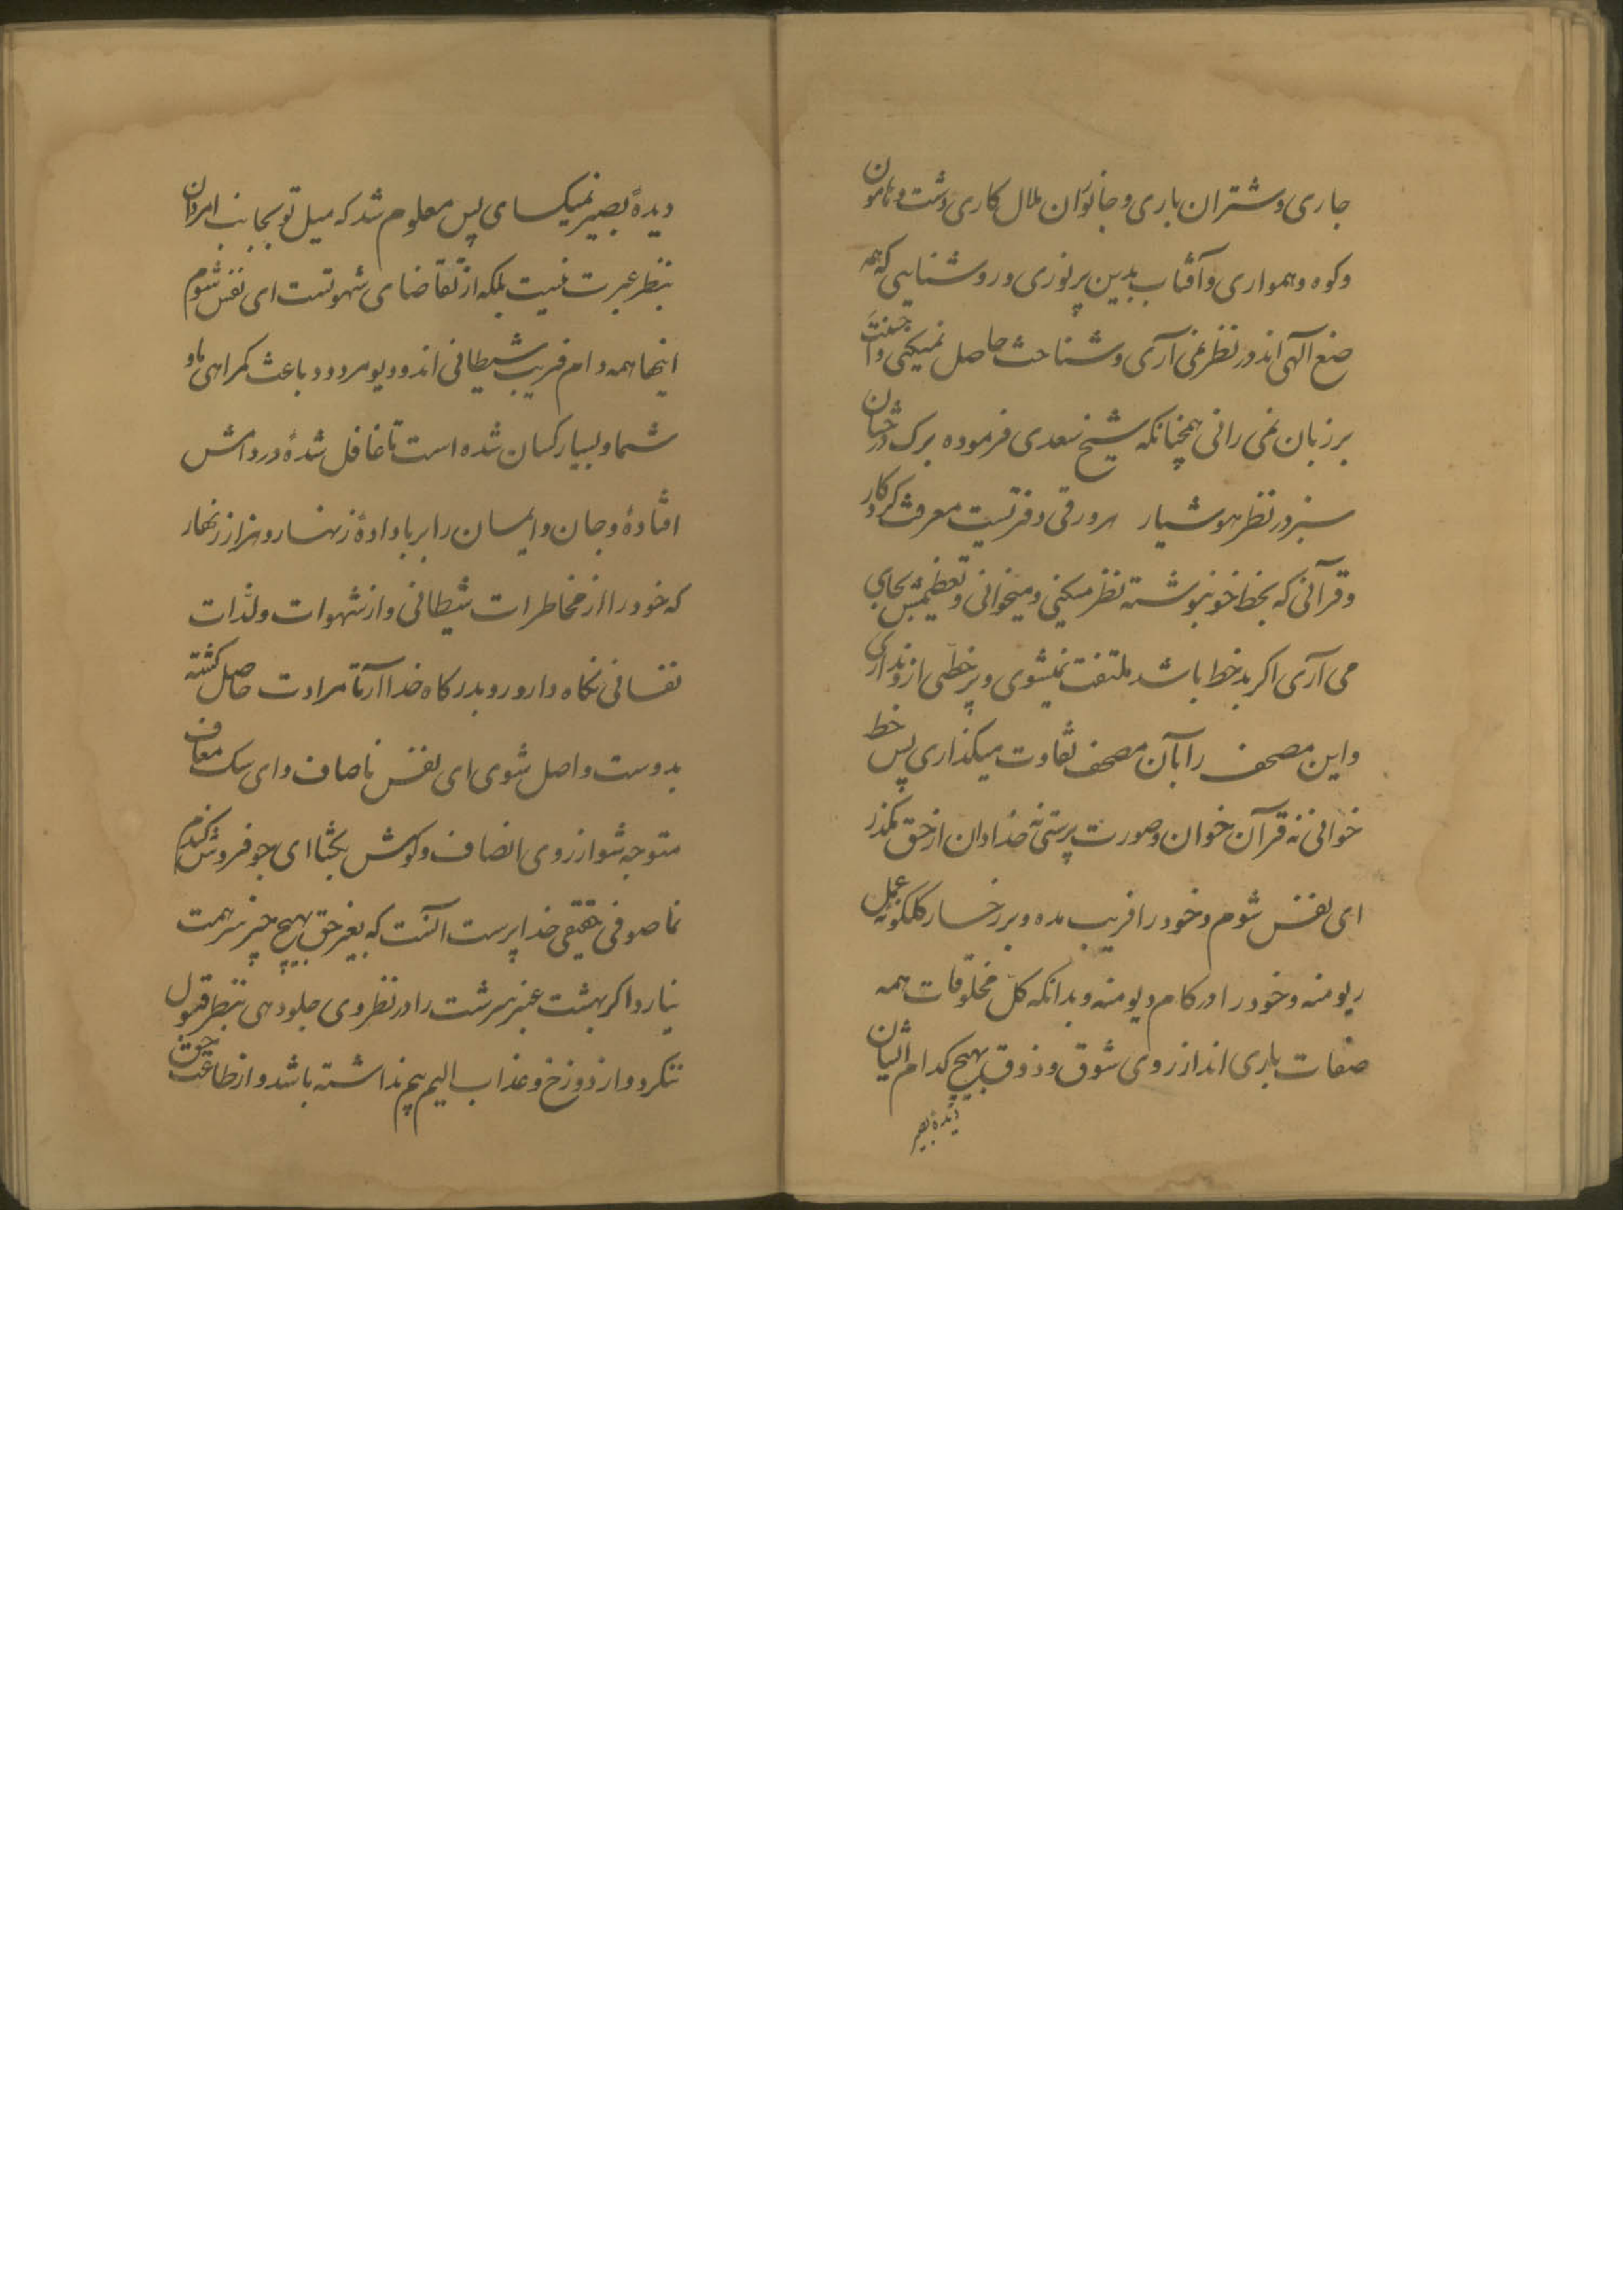 جاری و شتران باری و جانوران ملال کاری و دشت و هامون
و کوه و همواری و آفتاب بدین پرنوری و روشنایی که همه
صنع الهی اند در نظر نمی آری و شناخت حاصل نمیکنی و احسنت
بر زبان نمی رانی همچنانکه شیخ سعدی فرموده برک درختان
سبز در نظر هوشیار هر ورقی دفتریست معرفت کردکار
و قرآنی که بخط خوب نبوشته نظر میکنی و میخوانی و تعظیمش بجای
می آری اکر بد خط باشد ملتفت نمیشوی و پر خطی ازو نداری
و این مصحف را بآن مصحف تفاوت میکذاری پس خط
خوانی نه قرآن خوان و صورت پرستی نه خدا دان از حق مکذر
ای نفس شوم و خود را فریب مده و بر رخسار کلکونه عمل
ریو منه و خود را در کام دیو منه و بدانکه کل مخلوقات همه
صفات باری اند از روی شوق و ذوق بهیچ کدام الشان
دیدهٔ بصیر
دیدهٔ بصیر نمیکسای پس معلوم شد که میل تو بجانب امردان
بنظر عبرت نیست بلکه از تقاضای شهوتست ای نفس شوم
اینها همه دام فریب شیطانی اند و دیو مردود باعث کمراهی ما و
شما و بسیار کسان شده است تا غافل شدهٔ در دامش
افتادهٔ و جان و ایمان را بر باد دادهٔ زنهار و هزار زنهار
که خود را از مخاطرات شیطانی و از شهوات و لذات
نفسانی نکاه دار و رو بدرکاه خدا آر تا مرادت حاصل کشته
بدوست واصل شوی ای نفس ناصاف و ای سک معاف
متوجه شو از روی انصاف و کوش بکشا ای جو فروش کندم
نما صوفی حقیقی خدا پرست آنست که بغیر حق بهیچ چیز سر همت
نیارد اکر بهشت عنبر سرشت را در نظر وی جلوه دهی بنظر قبول
ننکرد و از دوزخ و عذاب الیم بیم نداشته باشد و از طاعت حق